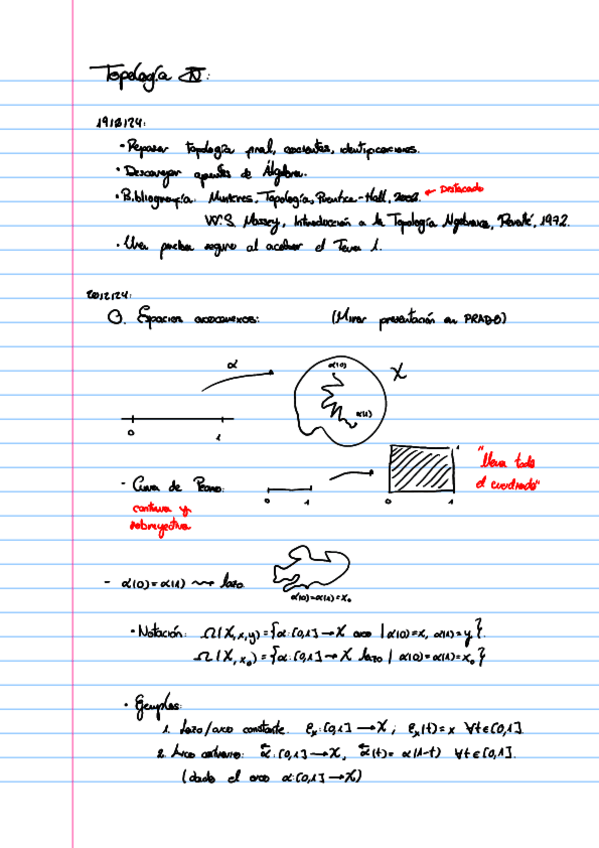 Topología II:
19/2/24:
· Repasar topología gral, cocientes, identificaciones.
· Descargar apuntes de Álgebra.
· Bibliografía. Munkres, Topología, Prentice-Hall, 2002. ← Destacado
W.S. Massey, Introducción a la Topología Algebraica, Reverté, 1972.
· Una prueba seguro al acabar el Tema 1.
20/2/24:
0. Espacios arcoconexos: (Mirar presentación en PRADO)
α
α(0)
X
α(1)
0 1
- Curva de Peano: 0 1 0 1 1
continua y
sobreyectiva
"llena todo
el cuadrado"
- α(0)=α(1) ⇝ lazo
α(0)=α(1)=x₀
· Notación: Ω(X,x,y)={α:[0,1]→X arco | α(0)=x, α(1)=y}.
Ω(X,x₀)={α:[0,1]→X lazo | α(0)=α(1)=x₀}
· Ejemplos:
1. Lazo/arco constante. εₓ:[0,1]→X; εₓ(t)=x ∀t∈[0,1]
2. Arco contrario: α̃:[0,1]→X, α̃(t)=α(1-t) ∀t∈[0,1].
(dado el arco α:[0,1]→X)